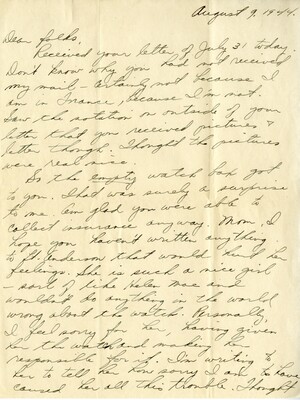 August 9, 1944.
Dear folks,
Received your letter of July 31 today.
Don't know why you had not received
my mail - certainly not because I
am in France, because I'm not.
Saw the notation on outside of your
letter that you received pictures &
letter though. Thought the pictures
were real nice.
So the empty watch box got
to you. That was surely a surprise
to me. Am glad you were able to
collect insurance anyway. Mom, I
hope you haven't written anything
to Ft. that would hurt her
feelings. She is such a nice girl
- sort of like Helen Mae and
wouldn't do anything in the world
wrong about the watch. Personally
I feel sorry for her, having given
her the watch and making her
responsible for it. I'm writing to
her to tell her how sorry I am to have
caused her all this trouble. Thought